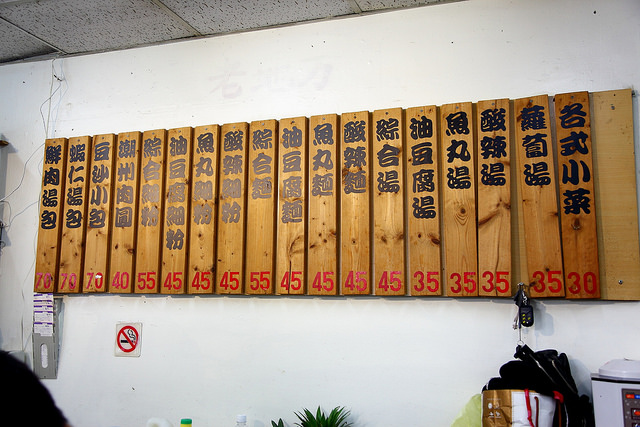 各式小菜 30
蘿蔔湯 35
酸辣湯 35
魚丸湯 35
油豆腐湯 35
綜合湯 45
酸辣麵 45
魚丸麵 45
油豆腐麵 45
綜合麵 55
酸辣細粉 45
魚丸細粉 45
油豆腐細粉 45
綜合細粉 55
潮州肉圓 40
豆沙小包 70
蝦仁湯包 70
鮮肉湯包 70